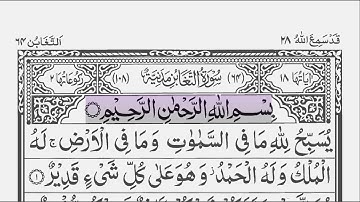 قَدْ سَمِعَ اللّٰهُ ٢٨
اَلتَّغَابُن ٦٤
اٰيَاتُهَا ١٨ (٦٤) سُوْرَةُ التَّغَابُنِ مَدَنِيَّةٌ (١٠٨) رُكُوْعَاتُهَا ٢
بِسْمِ اللّٰهِ الرَّحْمٰنِ الرَّحِيْمِ
يُسَبِّحُ لِلّٰهِ مَا فِى السَّمٰوٰتِ وَمَا فِى الْاَرْضِ ۚ لَهُ
الْمُلْكُ وَلَهُ الْحَمْدُ ۡ وَهُوَ عَلٰى كُلِّ شَىْءٍ قَدِيْرٌ ①